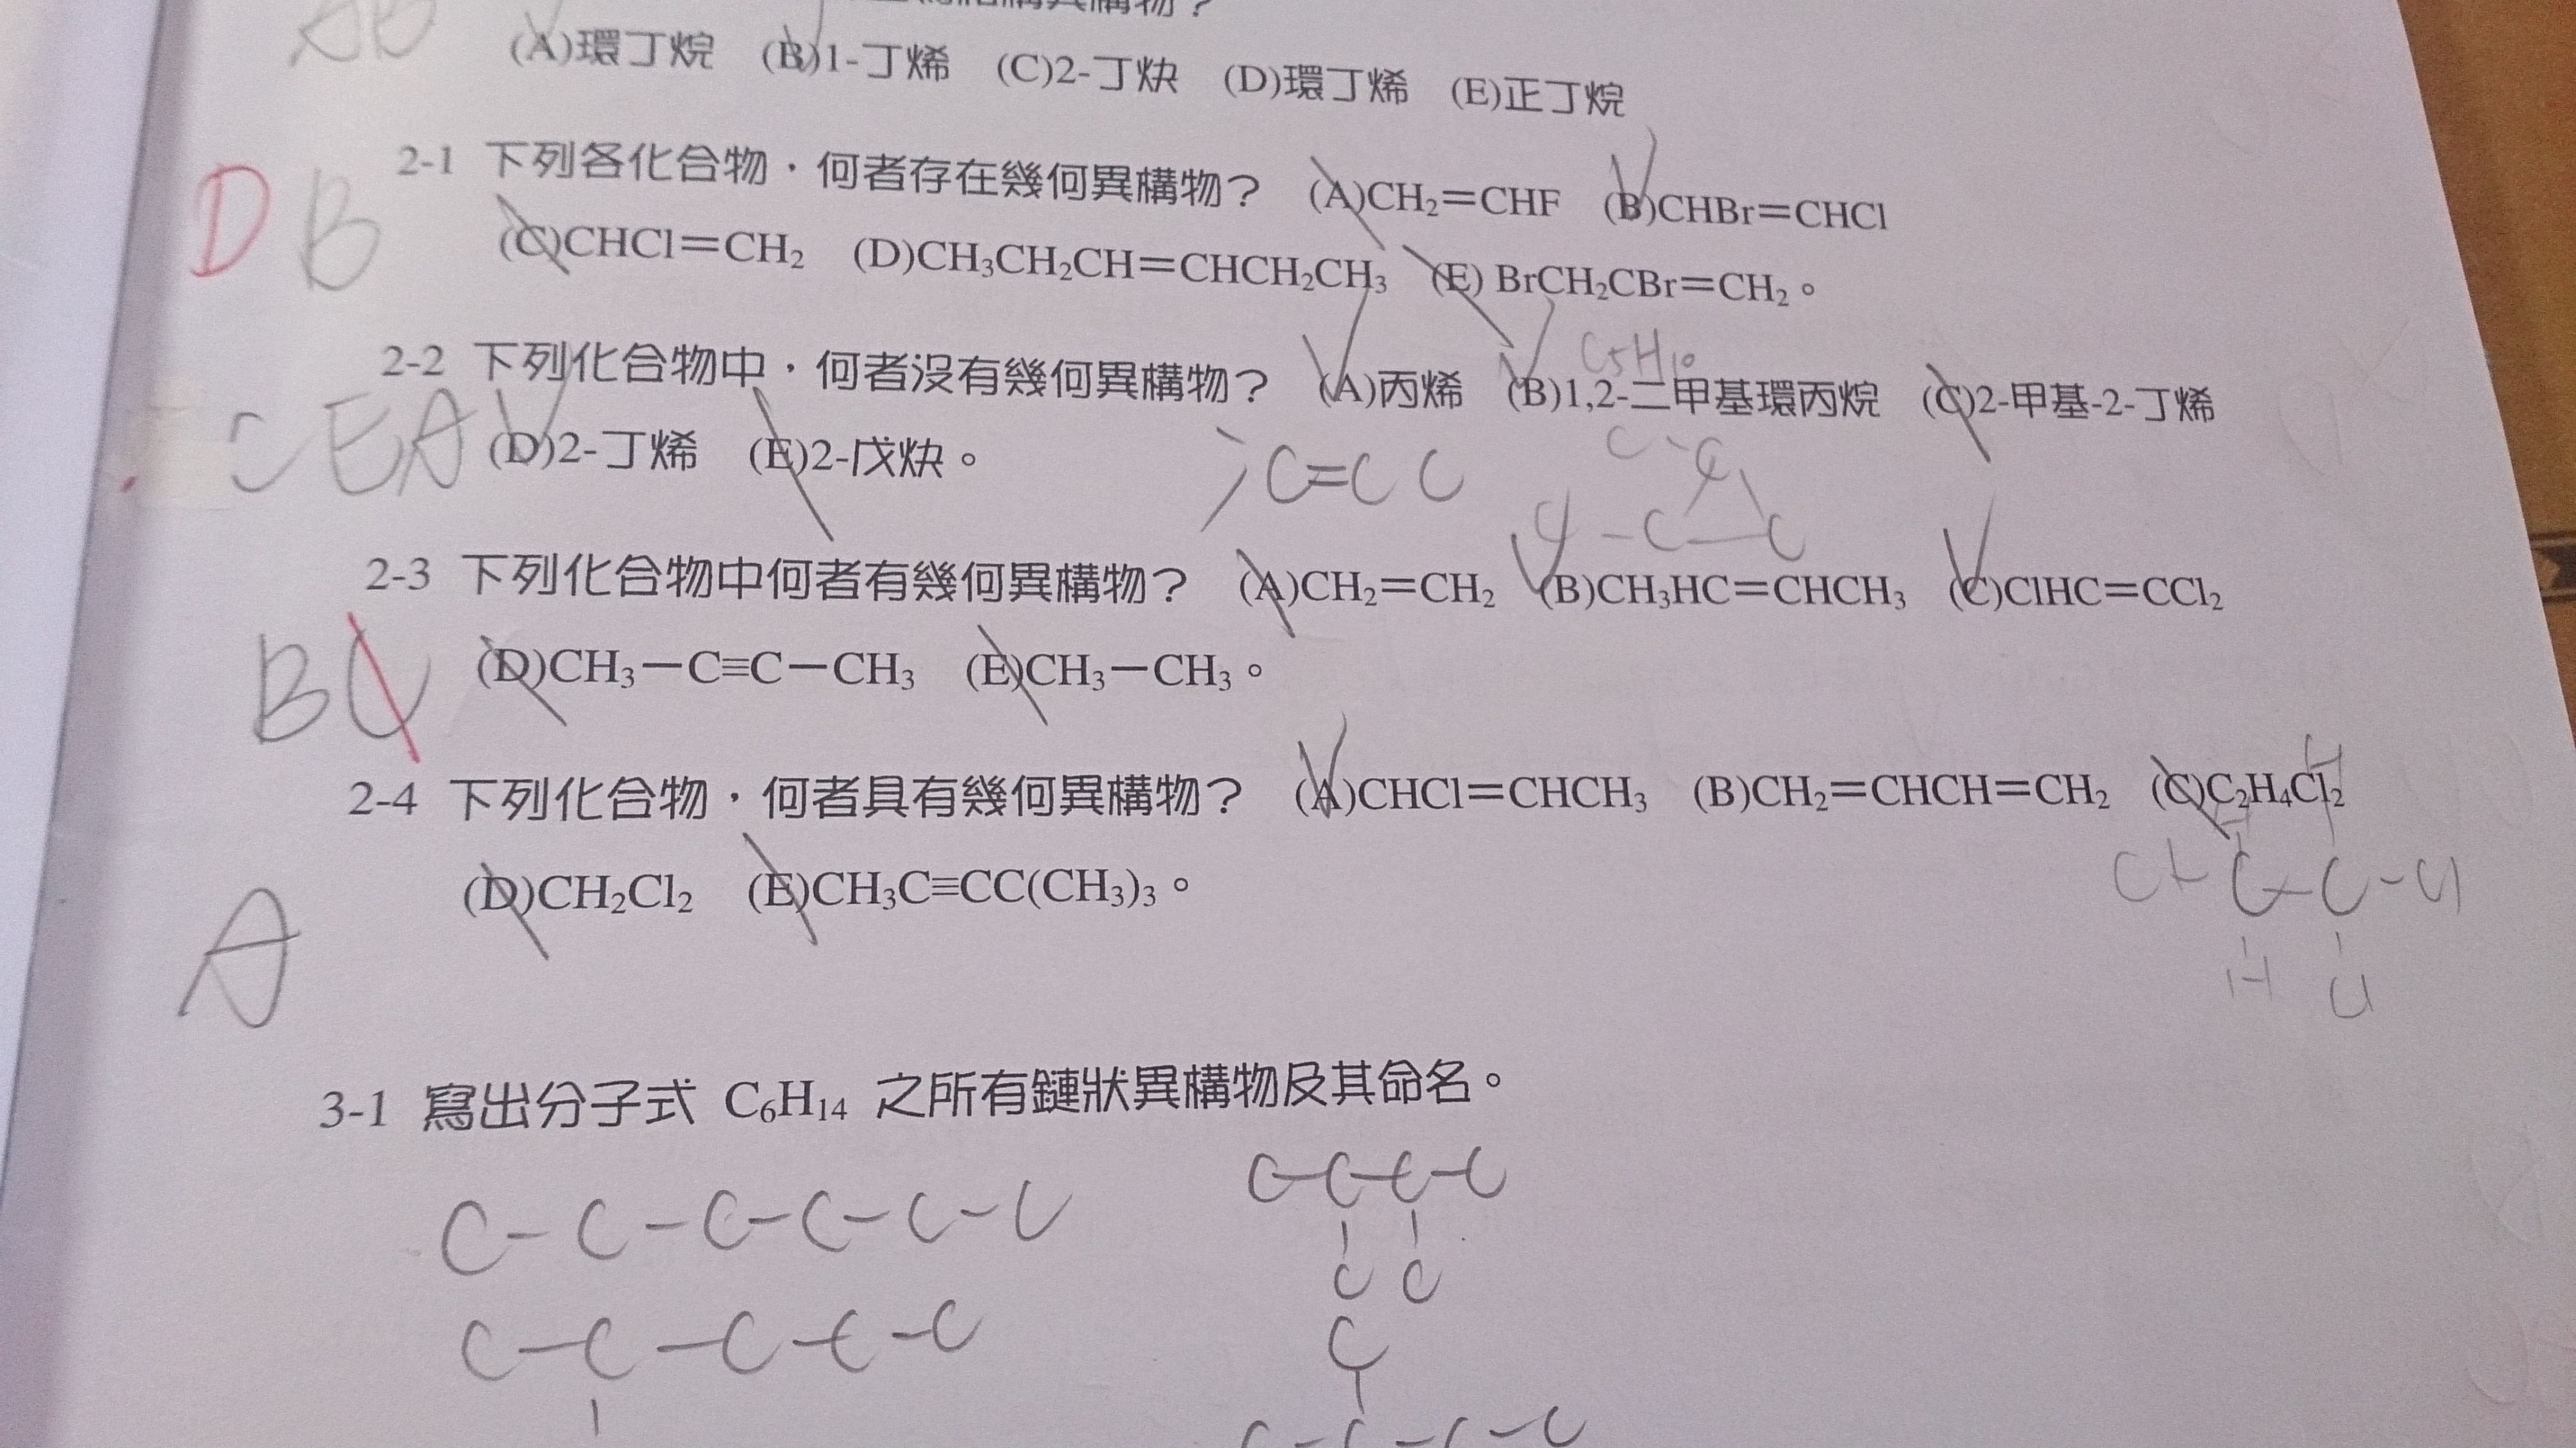 構異構物？
AB
(A)環丁烷 (B)1-丁烯 (C)2-丁炔 (D)環丁烯 (E)正丁烷
2-1 下列各化合物，何者存在幾何異構物？ (A)CH₂=CHF (B)CHBr=CHCl
D B
(C)CHCl=CH₂ (D)CH₃CH₂CH=CHCH₂CH₃ (E) BrCH₂CBr=CH₂。
C₅H₁₀
2-2 下列化合物中，何者沒有幾何異構物？ (A)丙烯 (B)1,2-二甲基環丙烷 (C)2-甲基-2-丁烯
CEA
(D)2-丁烯 (E)2-戊炔。
C=C C
C-C
C-C-C
2-3 下列化合物中何者有幾何異構物？ (A)CH₂=CH₂ (B)CH₃HC=CHCH₃ (C)ClHC=CCl₂
BC
(D)CH₃－C≡C－CH₃ (E)CH₃－CH₃。
2-4 下列化合物，何者具有幾何異構物？ (A)CHCl=CHCH₃ (B)CH₂=CHCH=CH₂ (C)C₂H₄Cl₂
H H
Cl-C-C-Cl
H Cl
A
(D)CH₂Cl₂ (E)CH₃C≡CC(CH₃)₃。
3-1 寫出分子式 C₆H₁₄ 之所有鏈狀異構物及其命名。
C-C-C-C-C-C
C-C-C-C
C C
C-C-C-C-C
C
C-C-C-C